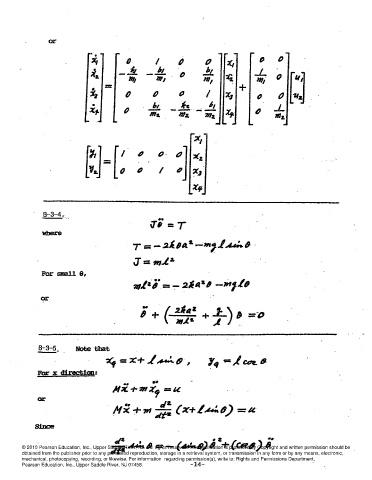 or
[ẋ₁ ẋ₂ ẋ₃ ẋ₄] = [0 1 0 0; -k₁/m₁ -b₁/m₁ 0 b₁/m₁; 0 0 0 1; 0 b₁/m₂ -k₂/m₂ -b₁/m₂] [x₁ x₂ x₃ x₄] + [0 0; 1/m₁ 0; 0 0; 0 1/m₂] [u₁ u₂]
[y₁ y₂] = [1 0 0 0; 0 0 1 0] [x₁ x₂ x₃ x₄]
B-3-4.
Jθ̈ = T
where
T = -2kθa² - mgl sinθ
J = ml²
For small θ,
ml²θ̈ = -2ka²θ - mglθ
or
θ̈ + (2ka²/ml² + g/l) θ = 0
B-3-5. Note that
x_g = x + l sinθ, y_g = l cosθ
For x direction:
Mẍ + mẍ_g = u
or
Mẍ + m d²/dt² (x + l sinθ) = u
Since
d²/dt² sinθ = -(sinθ) θ̇² + (cosθ) θ̈
© 2010 Pearson Education, Inc., Upper and written permission should be
obtained from the publisher prior to any reproduction, storage in a retrieval system, or transmission in any form or by any means, electronic,
mechanical, photocopying, recording, or likewise. For information regarding permission(s), write to: Rights and Permissions Department,
Pearson Education, Inc., Upper Saddle River, NJ 07458.
-14-